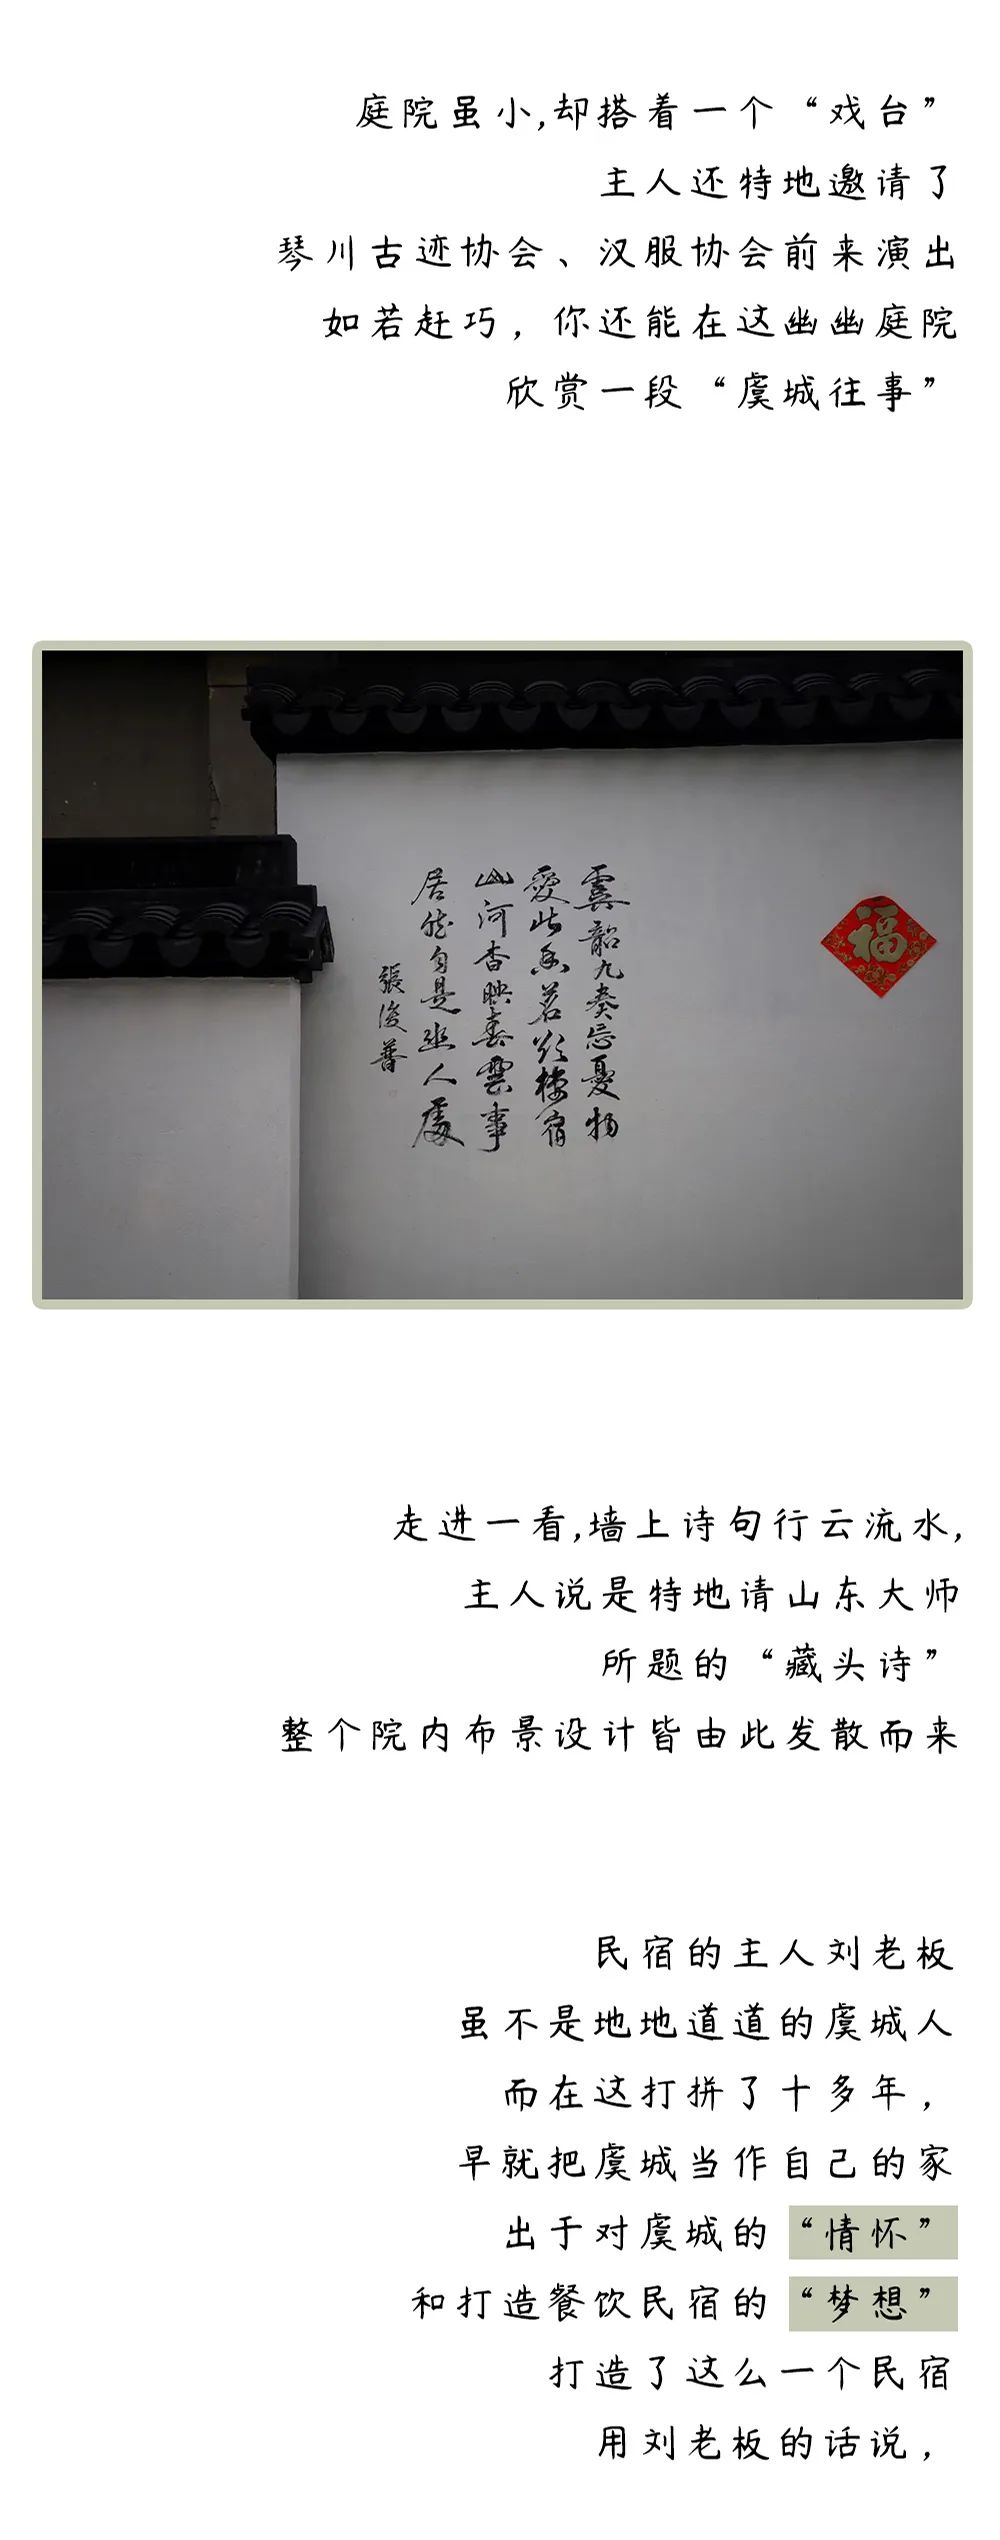 庭院虽小,却搭着一个“戏台”
主人还特地邀请了
琴川古迹协会、汉服协会前来演出
如若赶巧，你还能在这幽幽庭院
欣赏一段“虞城往事”
虞韶九奏忘憂物
愛此香茗於棲宿
山河杳映春雲事
居然自是幽人處
張俊普
福
走进一看,墙上诗句行云流水,
主人说是特地请山东大师
所题的“藏头诗”
整个院内布景设计皆由此发散而来
民宿的主人刘老板
虽不是地地道道的虞城人
而在这打拼了十多年，
早就把虞城当作自己的家
出于对虞城的“情怀”
和打造餐饮民宿的“梦想”
打造了这么一个民宿
用刘老板的话说，